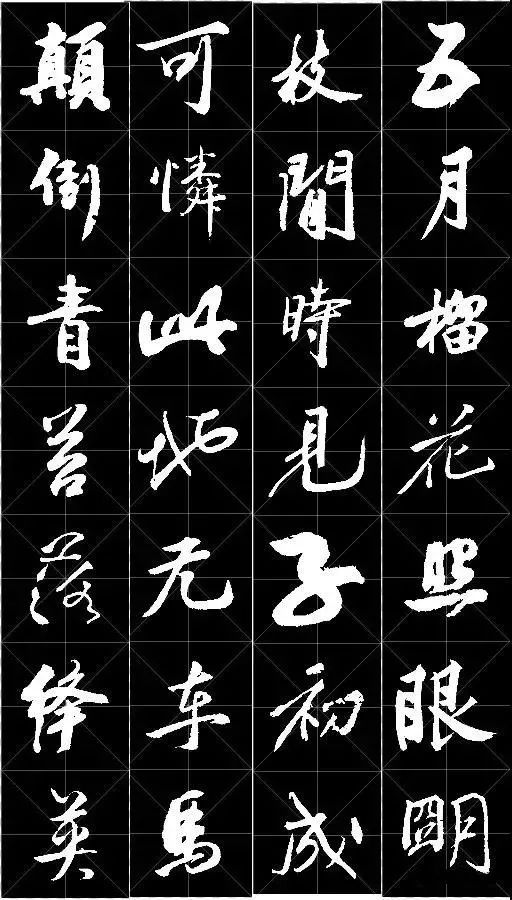 五月榴花照眼朙
枝閒時見子初成
可憐此地无车馬
顛倒青苔落絳英